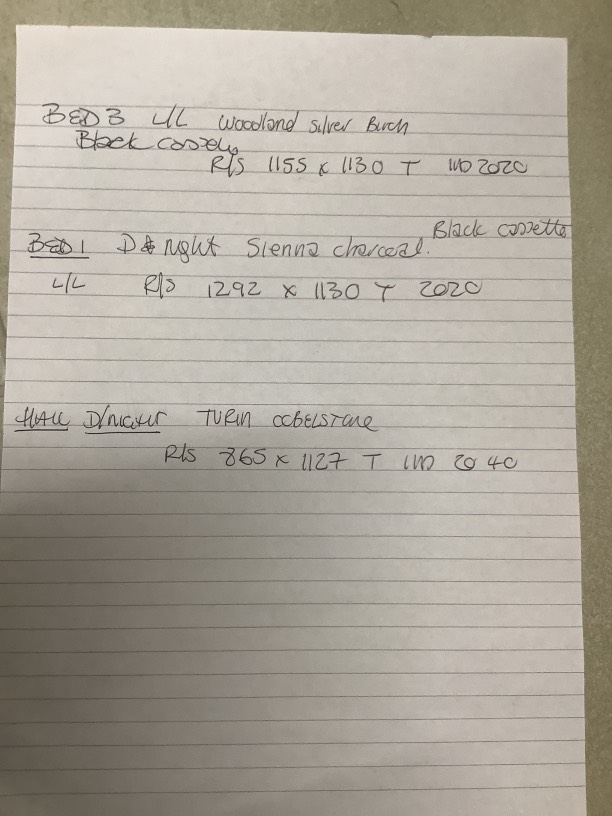 BED 3 L/L Woodland Silver Birch
Black cassette
R/S 1155 x 1130 T IND 2020
Black cassette
BED 1 D & night Sienna charcoal.
L/L R/S 1292 x 1130 T 2020
HALL D/NIGHT TURIN COBELSTONE
R/S 865 x 1127 T IND 2040